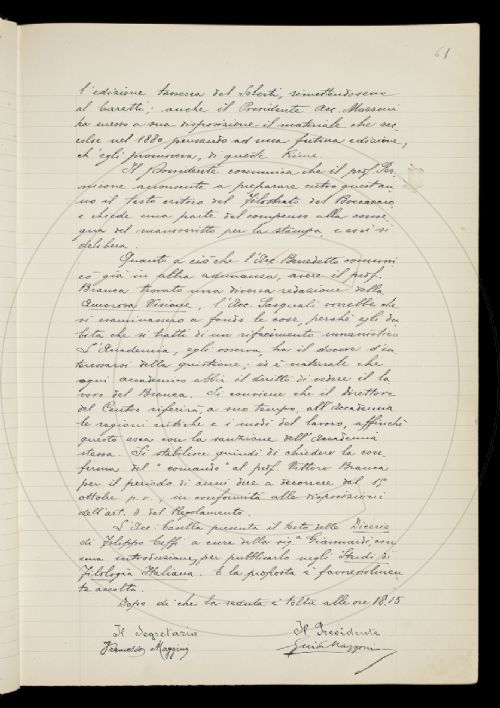 61
l'edizione tassesca del Solerti, rimettendosene
al Caretti; anche il Presidente Acc. Mazzoni
ha messo a sua disposizione il materiale che rac-
colse nel 1880 pensando ad una futura edizione,
ch'egli promoveva, di queste Rime.
Il Presidente comunica che il prof. Per-
nicone acconsente a preparare entro quest'an-
no il testo critico del Filostrato del Boccaccio
e chiede una parte del compenso alla conse-
gna del manoscritto per la stampa, e così si
delibera.
Quanto a ciò che l'Acc. Benedetto comuni-
cò già in altra adunanza, avere il prof.
Branca trovato una diversa redazione della
Amorosa Visione, l'Acc. Pasquali vorrebbe che
si esaminassero a fondo le cose, perché egli du-
bita che si tratti di un rifacimento umanistico.
L'Accademia, egli osserva, ha il dovere d'in-
teressarsi della questione; ed è naturale che
ogni accademico abbia il diritto di vedere il la-
voro del Branca. Si conviene che il direttore
del Centro riferirà, a suo tempo, all'Accademia
le ragioni critiche e i modi del lavoro, affinché
questo esca con la sanzione dell'Accademia
stessa. Si stabilisce quindi di chiedere la con-
ferma del "comando" al prof. Vittore Branca
per il periodo di anni due a decorrere dal 15
ottobre p.v., in conformità alle disposizioni
dell'art. 3 del Regolamento.
L'Acc. Casella presenta il testo delle Dicerie
di Filippo Ceffi a cura della sig.a Giannardi, con
una introduzione, per pubblicarlo negli Studi di
Filologia Italiana. E la proposta è favorevolmen-
te accolta.
Dopo di che la seduta è tolta alle ore 18.15
Il Segretario Il Presidente
Francesco Maggini Guido Mazzoni